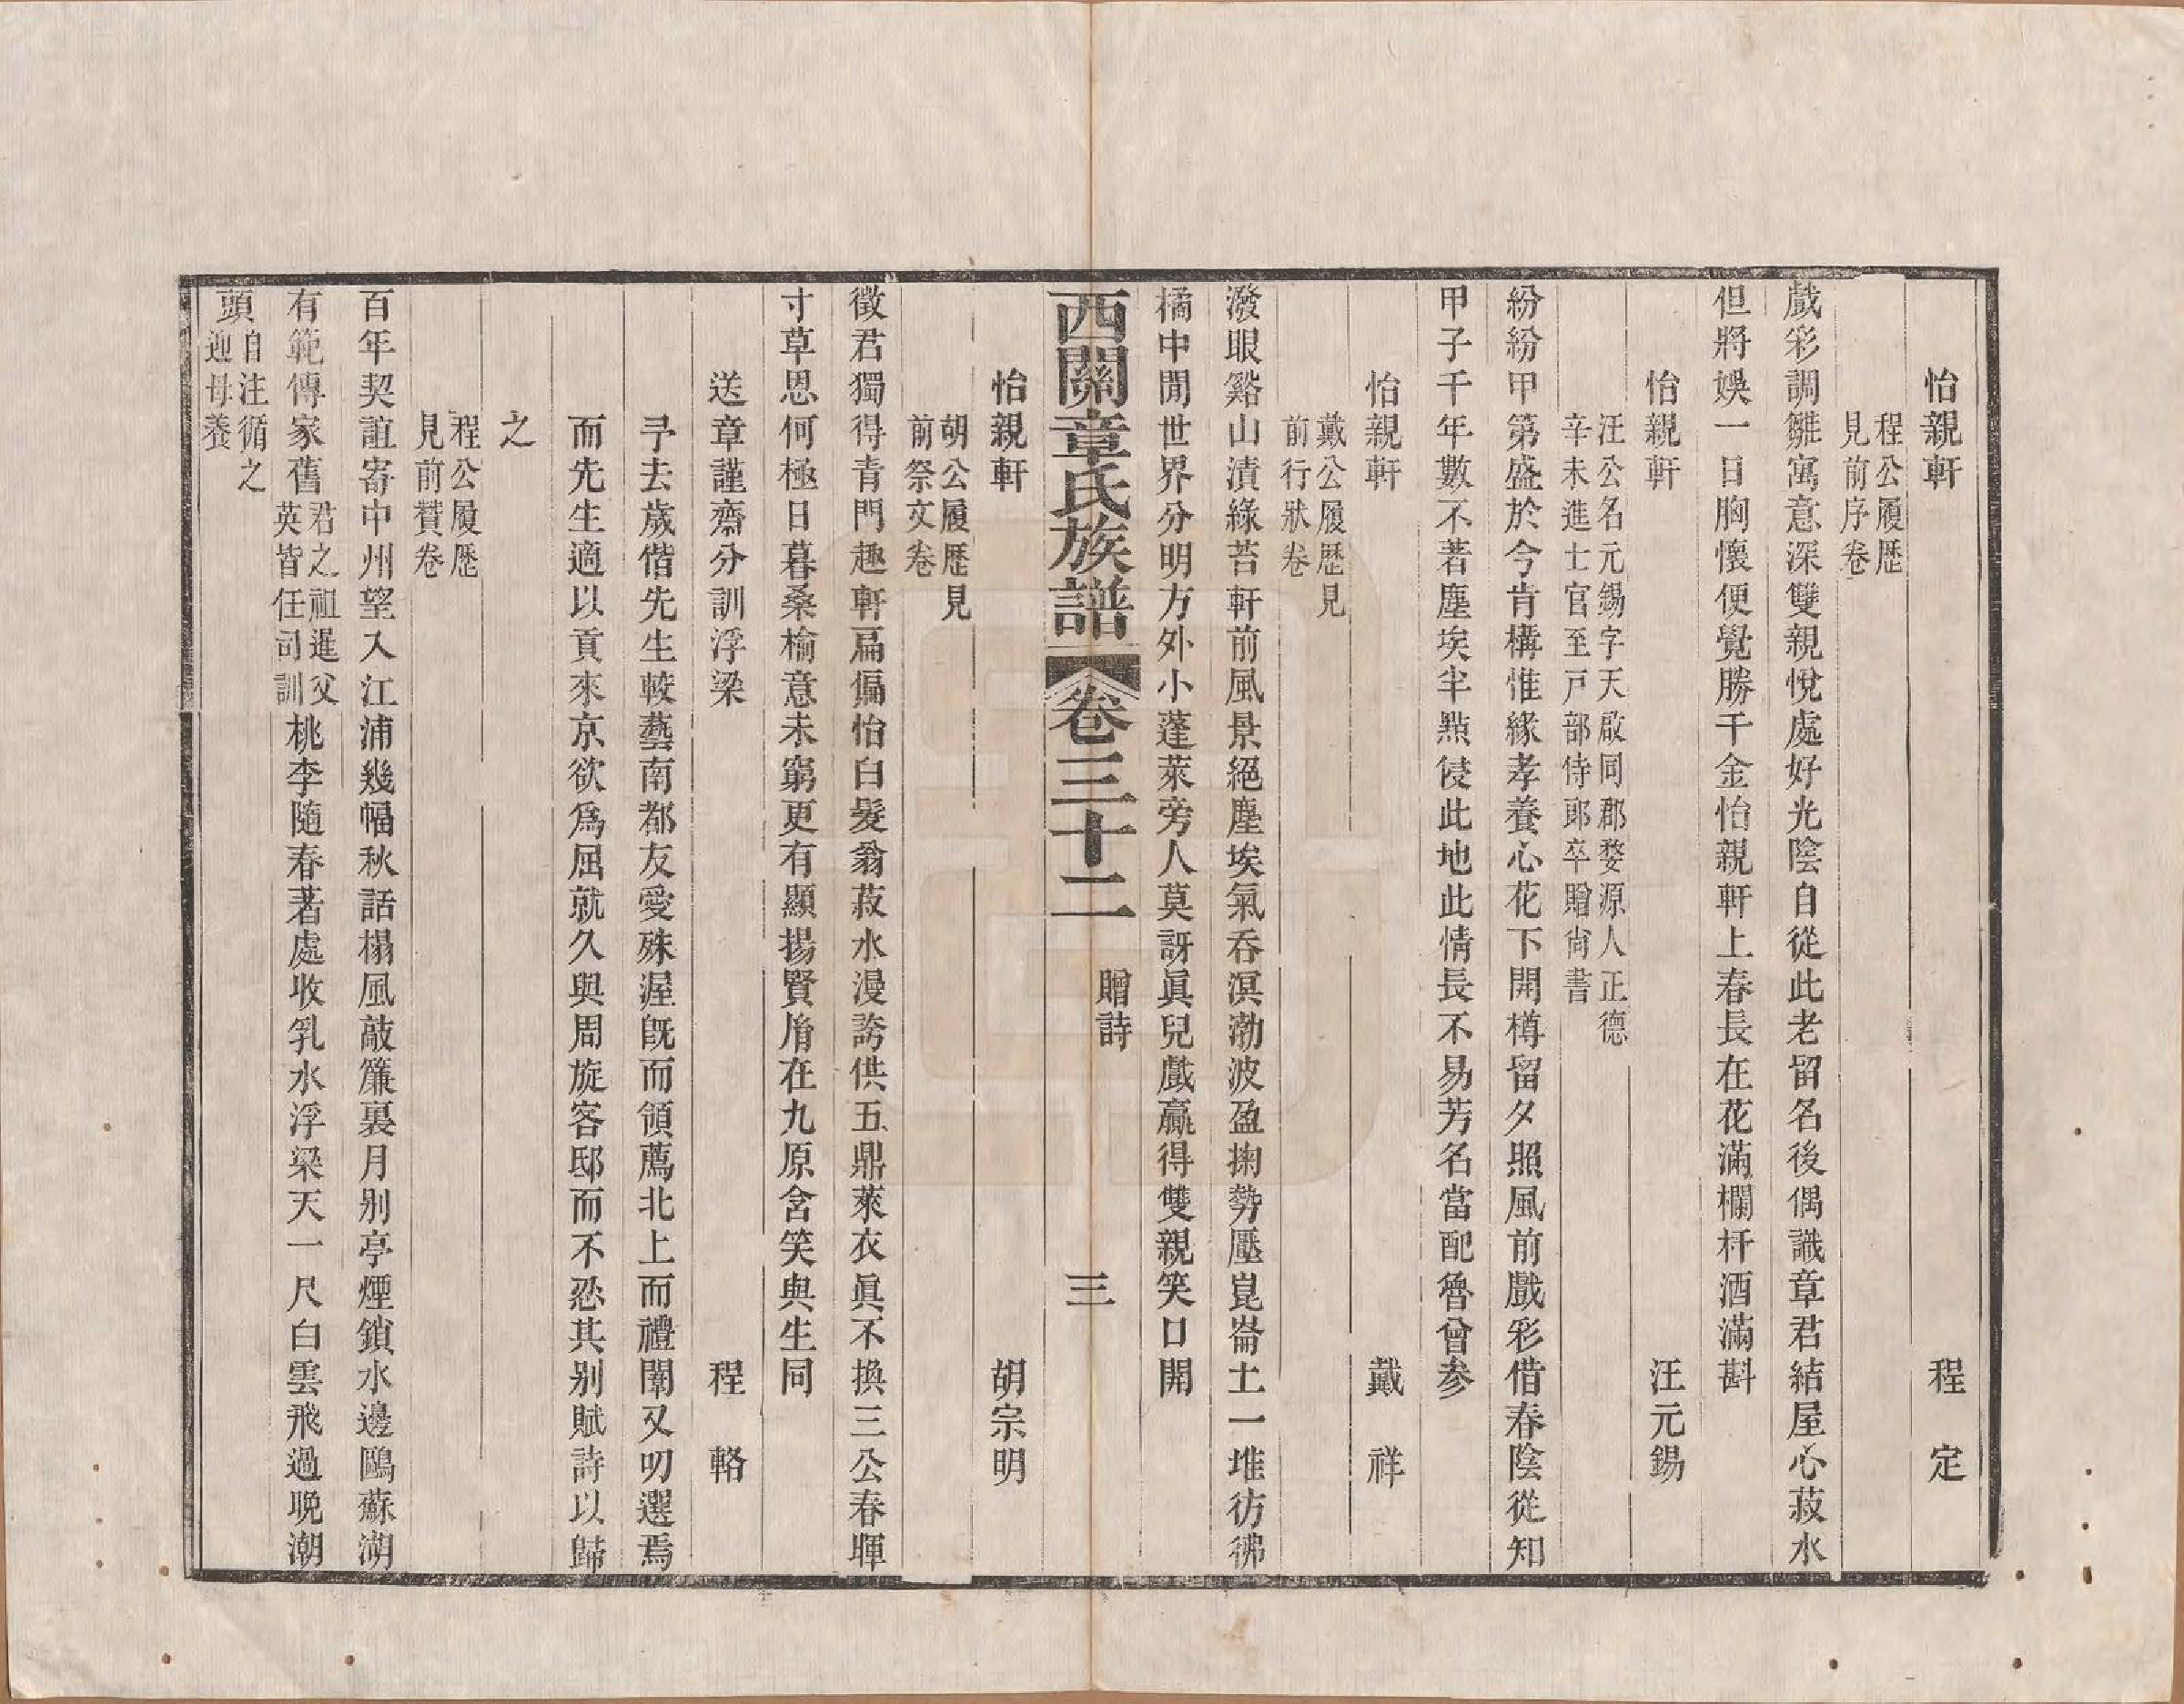 怡親軒　程　定
程公履歷
見前序卷
戲彩調雛寓意深雙親悅處好光陰自從此老留名後偶識章君結屋心菽水
但將娛一日胸懷便覺勝千金怡親軒上春長在花滿欄杆酒滿斟
怡親軒　汪元錫
汪公名元錫字天啟同郡婺源人正德
辛未進士官至戸部侍郎卒贈尙書
紛紛甲第盛於今肯構惟緣孝養心花下開樽留夕照風前戲彩借春陰從知
甲子千年數不著塵埃半點侵此地此情長不易芳名當配魯曾參
怡親軒　戴　祥
戴公履歷見
前行狀卷
潑眼谿山漬綠苔軒前風景絕塵埃氣吞溟渤波盈掬勢壓崑崙土一堆彷彿
橘中閒世界分明方外小蓬萊旁人莫訝眞兒戲贏得雙親笑口開
西關章氏族譜　卷三十二　贈詩　三
怡親軒　胡宗明
胡公履歷見
前祭文卷
徵君獨得青門趣軒扁偏怡白髮翁菽水漫誇供五鼎萊衣眞不換三公春暉
寸草恩何極日暮桑榆意未窮更有顯揚賢胤在九原含笑與生同
送章謹齋分訓浮梁　程　輅
予去歲偕先生較藝南都友愛殊渥旣而領薦北上而禮闈又叨選焉
而先生適以貢來京欲爲屈就久與周旋客邸而不忍其別賦詩以歸
之
程公履歷
見前贊卷
百年契誼寄中州望入江浦幾幅秋話榻風敲簾裏月別亭煙鎖水邊鷗蘇湖
有範傳家舊君之祖暹父英皆任司訓桃李隨春著處收乳水浮梁天一尺白雲飛過晚潮
頭自注循之迎母養